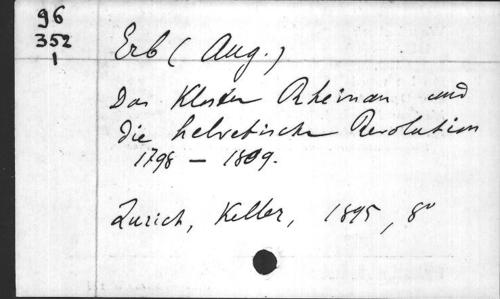 96
352
1
Erb (Aug.)
Das Kloster Rheinau und
die helvetische Revolution
1798 – 1809.
Zurich, Keller, 1895, 8°